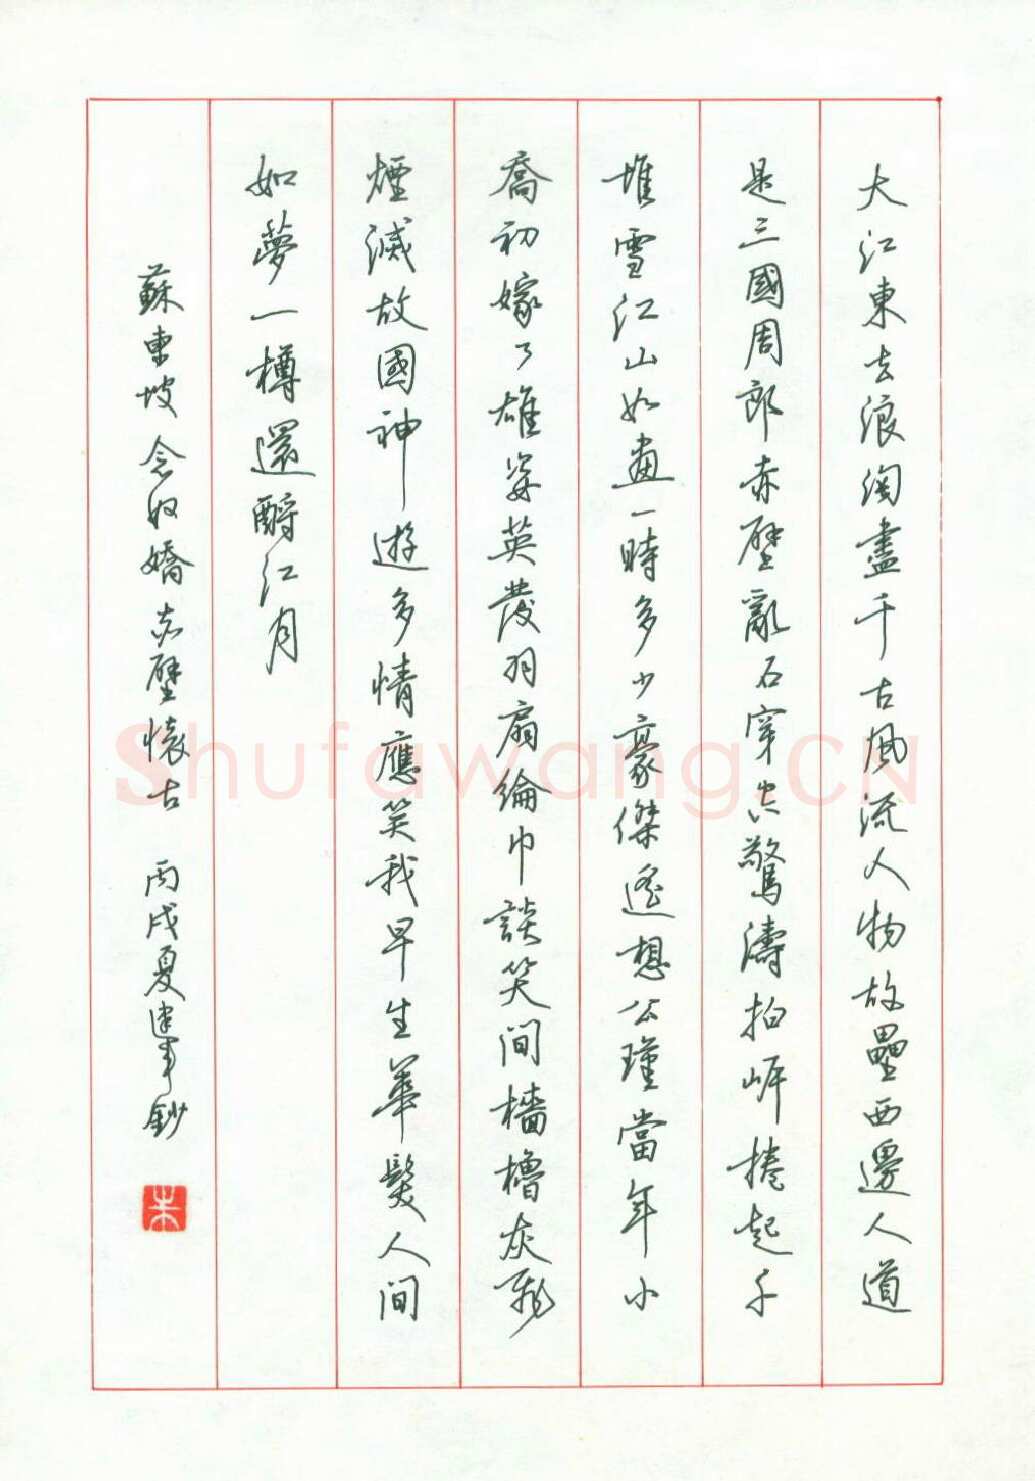 大江東去浪淘盡千古風流人物故壘西邊人道
是三國周郎赤壁亂石穿空驚濤拍岸捲起千
堆雪江山如畫一時多少豪傑遙想公瑾當年小
喬初嫁了雄姿英發羽扇綸巾談笑間檣櫓灰飛
煙滅故國神遊多情應笑我早生華髮人間
如夢一樽還酹江月
蘇東坡念奴嬌赤壁懷古 丙戌夏建軍鈔
朱
Shufawang.CN